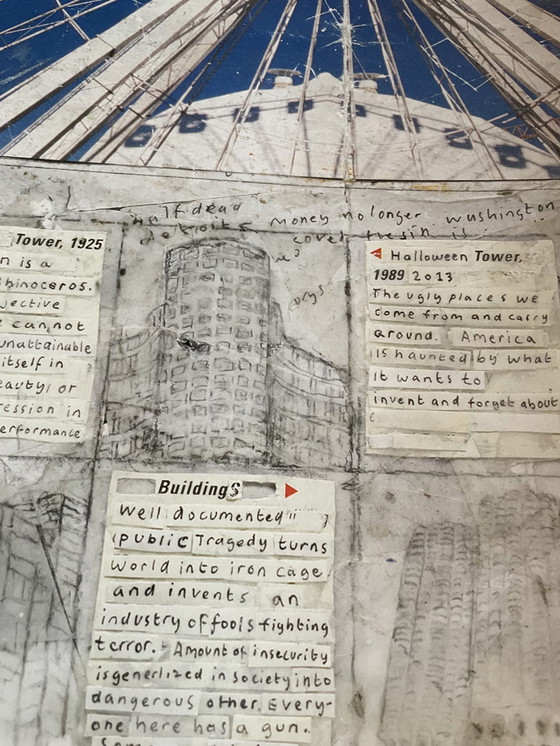 half dead
detroits
money no longer washington
Tower, 1925
n is a
hinoceros.
jective
e cannot
unattainable
itself in
eauty, or
ression in
erformante
Halloween Tower,
1989 2013
The ugly places we
come from and carry
around. America
is haunted by what
it wants to
invent and forget about
Buildings
Well documented
(public Tragedy turns
world into iron cage
and invents an
industry of fools fighting
terror. - Amount of insecurity
is generlized in society into
dangerous other. Every-
one here has a gun.